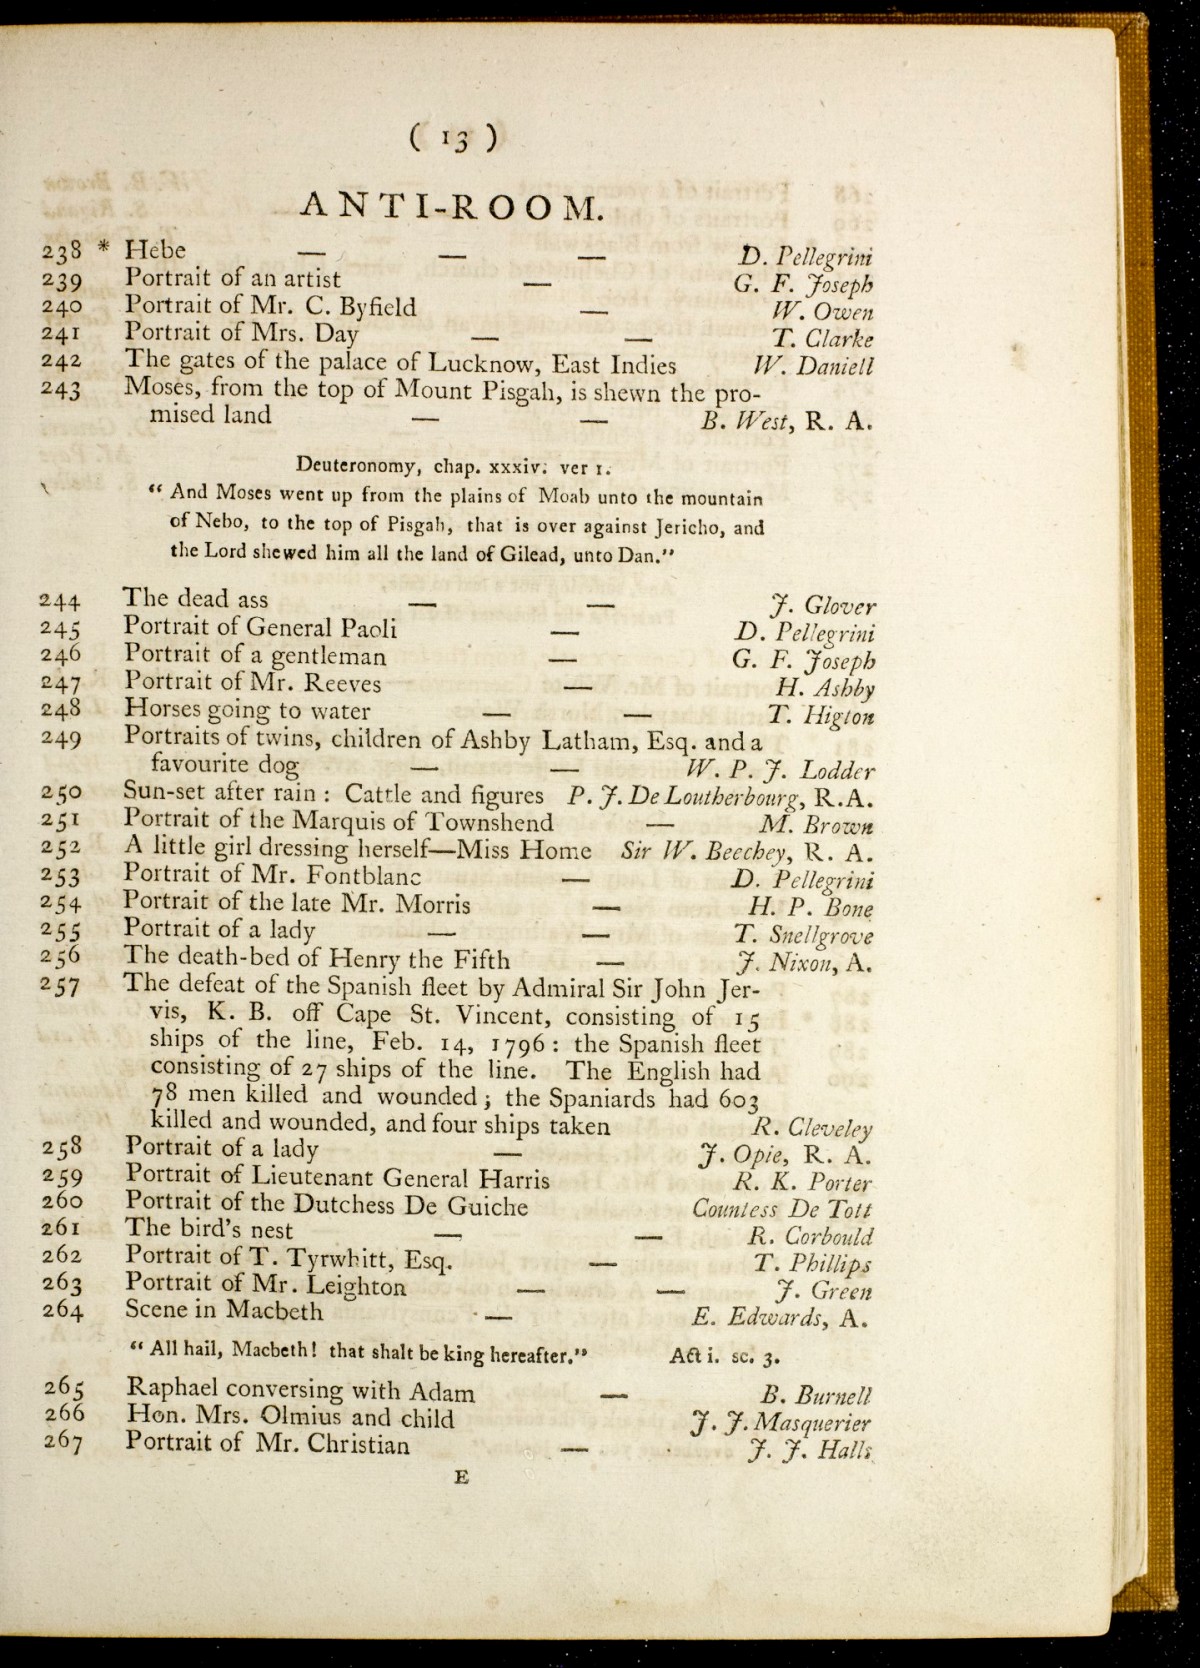 ( 13 )
ANTI-ROOM.
238 * Hebe — — — D. Pellegrini
239 Portrait of an artist — G. F. Joseph
240 Portrait of Mr. C. Byfield — W. Owen
241 Portrait of Mrs. Day — — T. Clarke
242 The gates of the palace of Lucknow, East Indies W. Daniell
243 Moses, from the top of Mount Pisgah, is shewn the pro-
mised land — — B. West, R. A.
Deuteronomy, chap. xxxiv. ver 1.
“ And Moses went up from the plains of Moab unto the mountain
of Nebo, to the top of Pisgah, that is over against Jericho, and
the Lord shewed him all the land of Gilead, unto Dan.”
244 The dead ass — — J. Glover
245 Portrait of General Paoli — D. Pellegrini
246 Portrait of a gentleman — G. F. Joseph
247 Portrait of Mr. Reeves — H. Ashby
248 Horses going to water — — T. Higton
249 Portraits of twins, children of Ashby Latham, Esq. and a
favourite dog — — W. P. J. Lodder
250 Sun-set after rain : Cattle and figures P. J. De Loutherbourg, R.A.
251 Portrait of the Marquis of Townshend — M. Brown
252 A little girl dressing herself—Miss Home Sir W. Beechey, R. A.
253 Portrait of Mr. Fontblanc — D. Pellegrini
254 Portrait of the late Mr. Morris — H. P. Bone
255 Portrait of a lady — — T. Snellgrove
256 The death-bed of Henry the Fifth — J. Nixon, A.
257 The defeat of the Spanish fleet by Admiral Sir John Jer-
vis, K. B. off Cape St. Vincent, consisting of 15
ships of the line, Feb. 14, 1796 : the Spanish fleet
consisting of 27 ships of the line. The English had
78 men killed and wounded ; the Spaniards had 603
killed and wounded, and four ships taken R. Cleveley
258 Portrait of a lady — J. Opie, R. A.
259 Portrait of Lieutenant General Harris R. K. Porter
260 Portrait of the Dutchess De Guiche Countess De Tott
261 The bird's nest — — R. Corbould
262 Portrait of T. Tyrwhitt, Esq. — T. Phillips
263 Portrait of Mr. Leighton — — J. Green
264 Scene in Macbeth — E. Edwards, A.
“ All hail, Macbeth! that shalt be king hereafter.” Act i. sc. 3.
265 Raphael conversing with Adam — B. Burnell
266 Hon. Mrs. Olmius and child J. J. Masquerier
267 Portrait of Mr. Christian — J. J. Halls
E